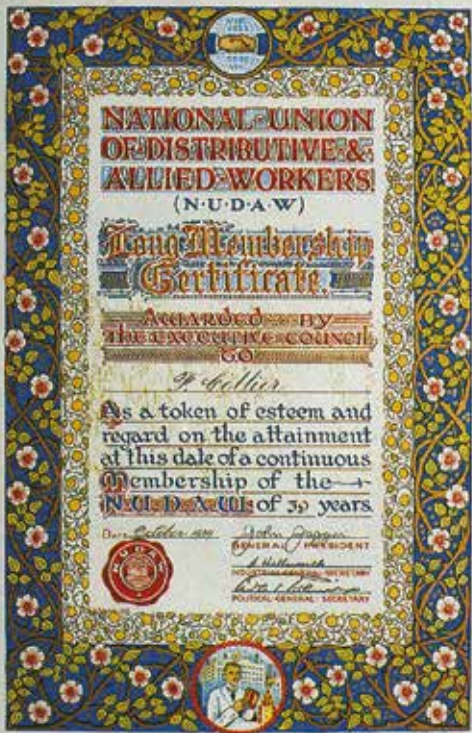 NATIONAL·UNION
OF·DISTRIBUTIVE·&·
ALLIED·WORKERS
(N·U·D·A·W)
Long Membership
Certificate.
AWARDED BY
THE EXECUTIVE COUNCIL
TO
Collier
As a token of esteem and
regard on the attainment
at this date of a continuous
Membership of the
N·U·D·A·W· of 30 years
Date October John Jagger
GENERAL PRESIDENT
INDUSTRIAL GENERAL SECRETARY
POLITICAL GENERAL SECRETARY
NUDAW